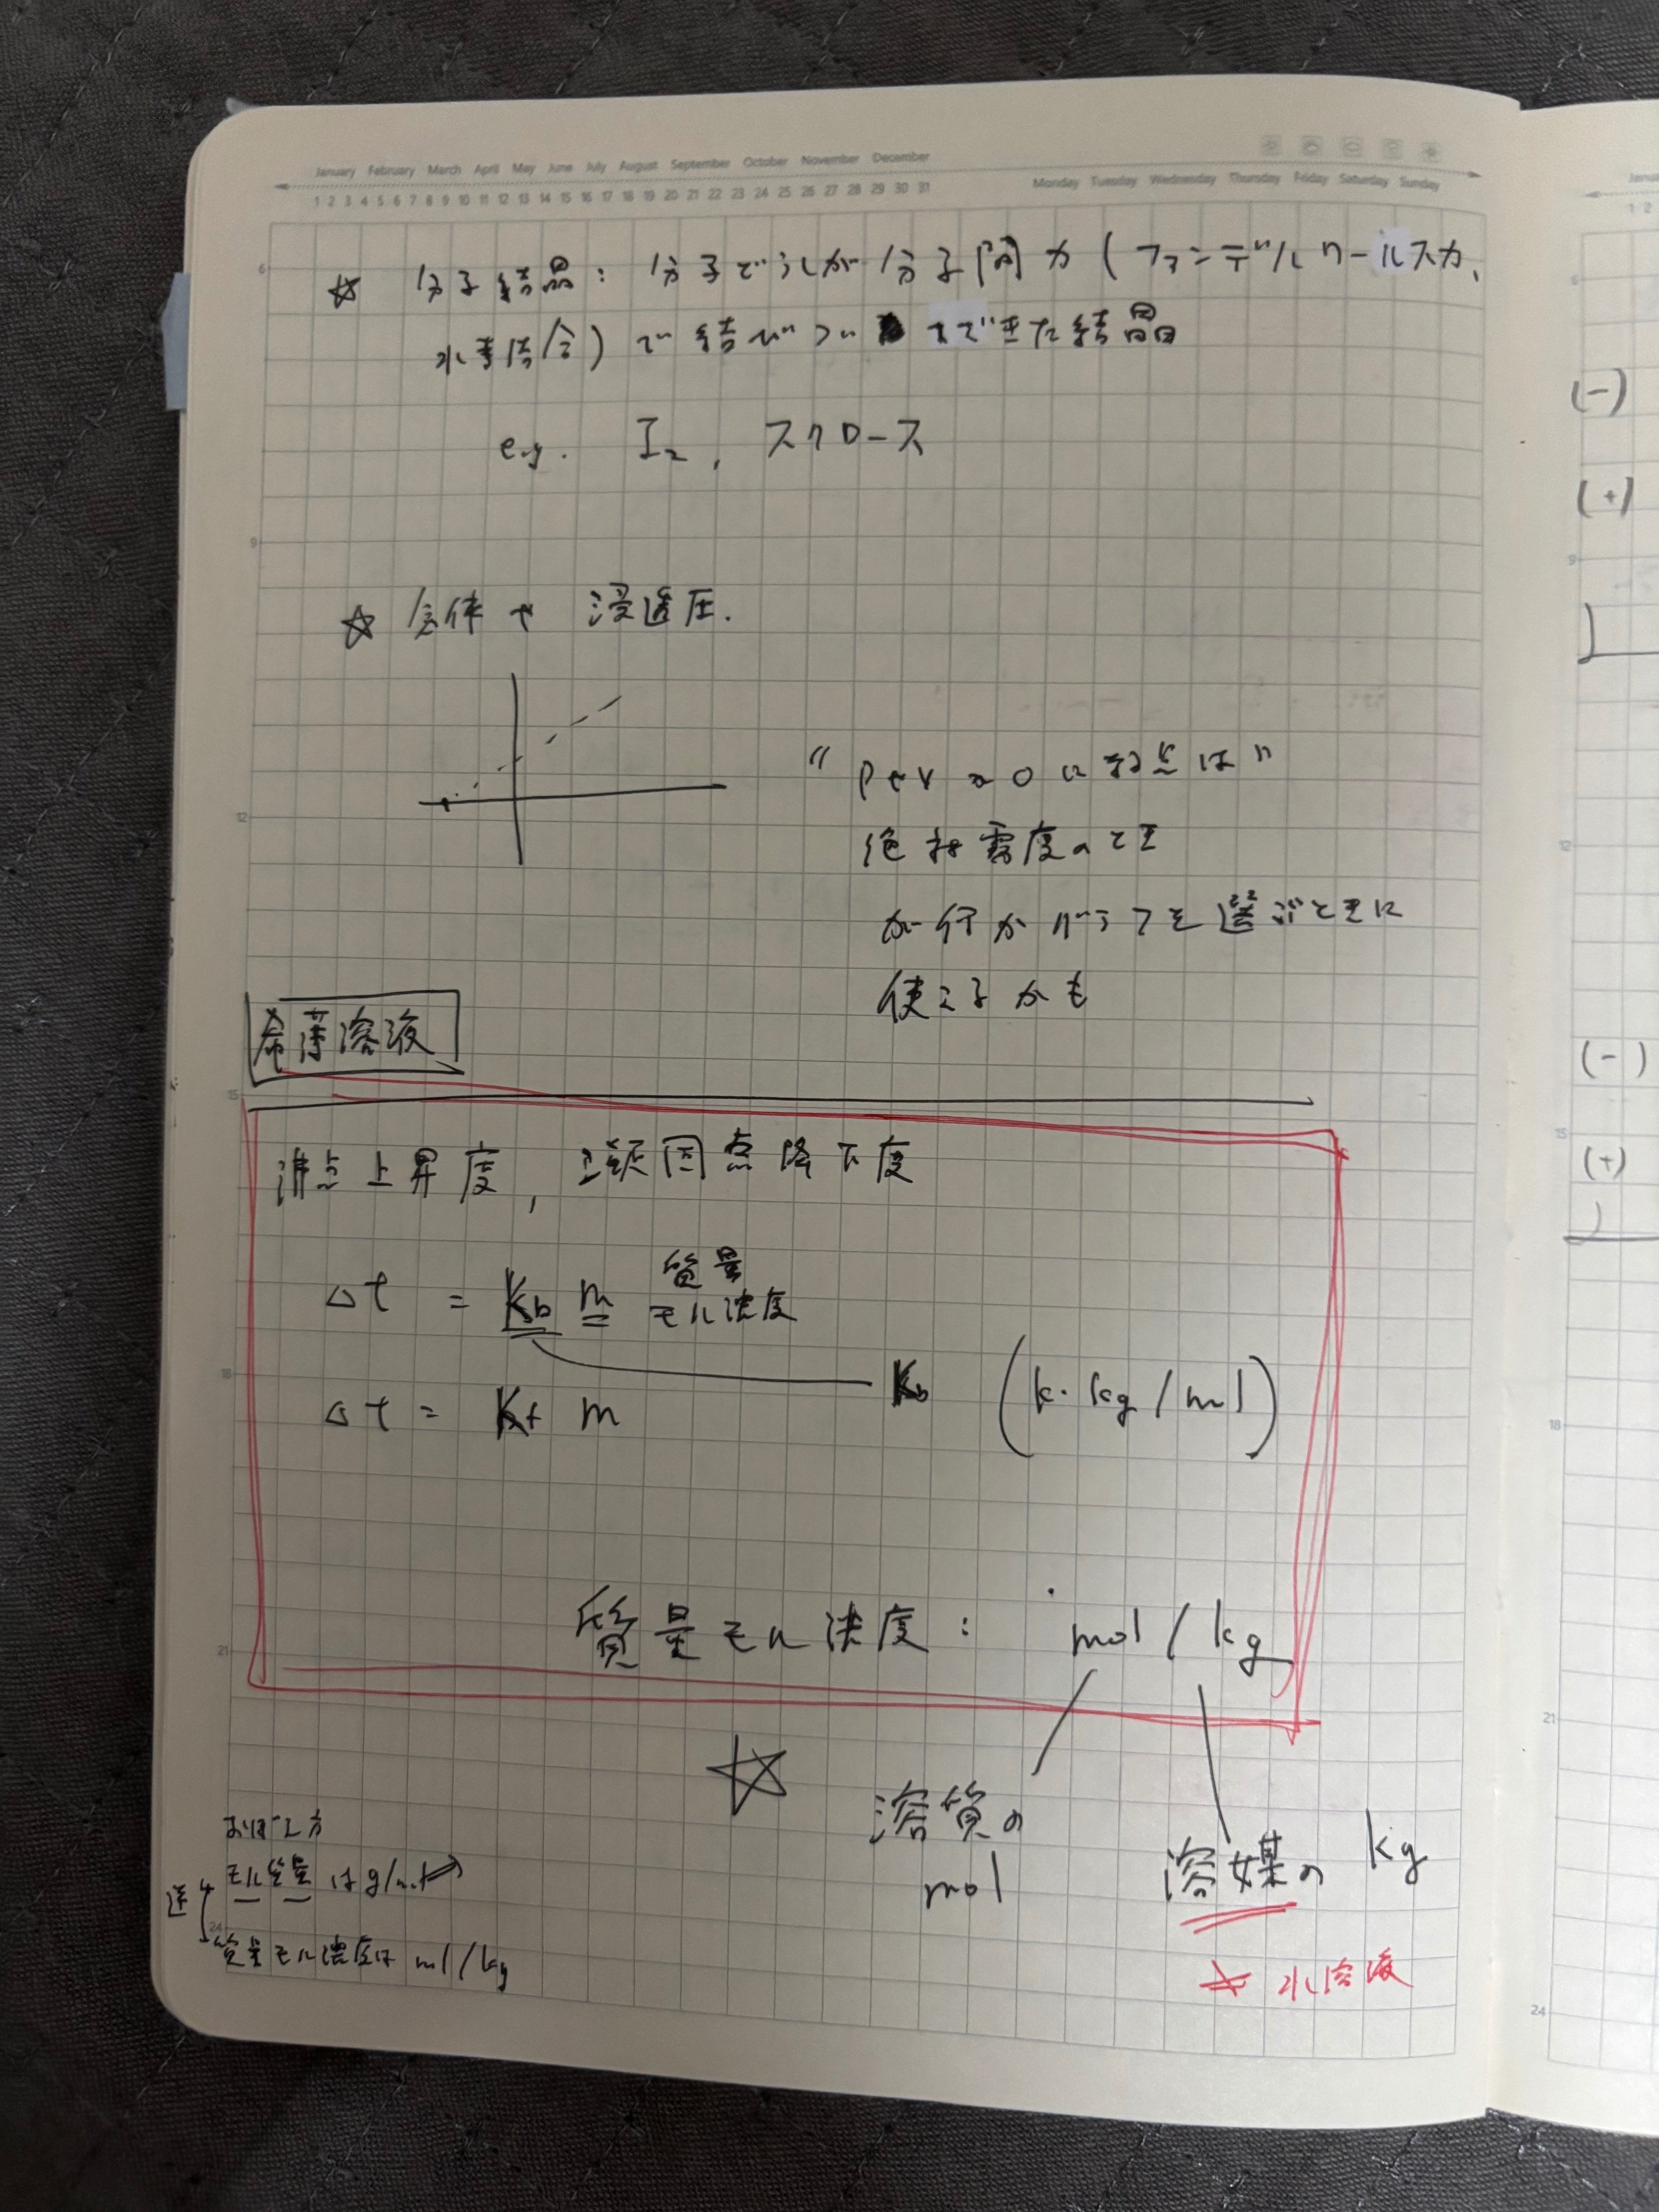 January February March April May June July August September October November December
1 2 3 4 5 6 7 8 9 10 11 12 13 14 15 16 17 18 19 20 21 22 23 24 25 26 27 28 29 30 31
Monday Tuesday Wednesday Thursday Friday Saturday Sunday
6
☆ 分子結晶: 分子どうしが分子間力(ファンデルワールスカ、
水素結合)で結びついてできた結晶
e.g. I₂, スクロース
9
☆ 気体や 浸透圧.
"PやVが0になる点は"
12
絶対零度のとき
か否かグラフを選ぶときに
使えるかも
希薄溶液
15
沸点上昇度, 凝固点降下度
質量
Δt = Kb m モル濃度
18
Kb (k・kg/mol)
Δt = Kf m
質量モル濃度: mol/kg
21
☆ 溶質の
mol
溶媒の kg
☆ 水溶液
おぼえ方
モル質量 は g/mol
逆
24
質量モル濃度は mol/kg
(-)
(+)
9
12
(-)
15
(+)
18
21
24